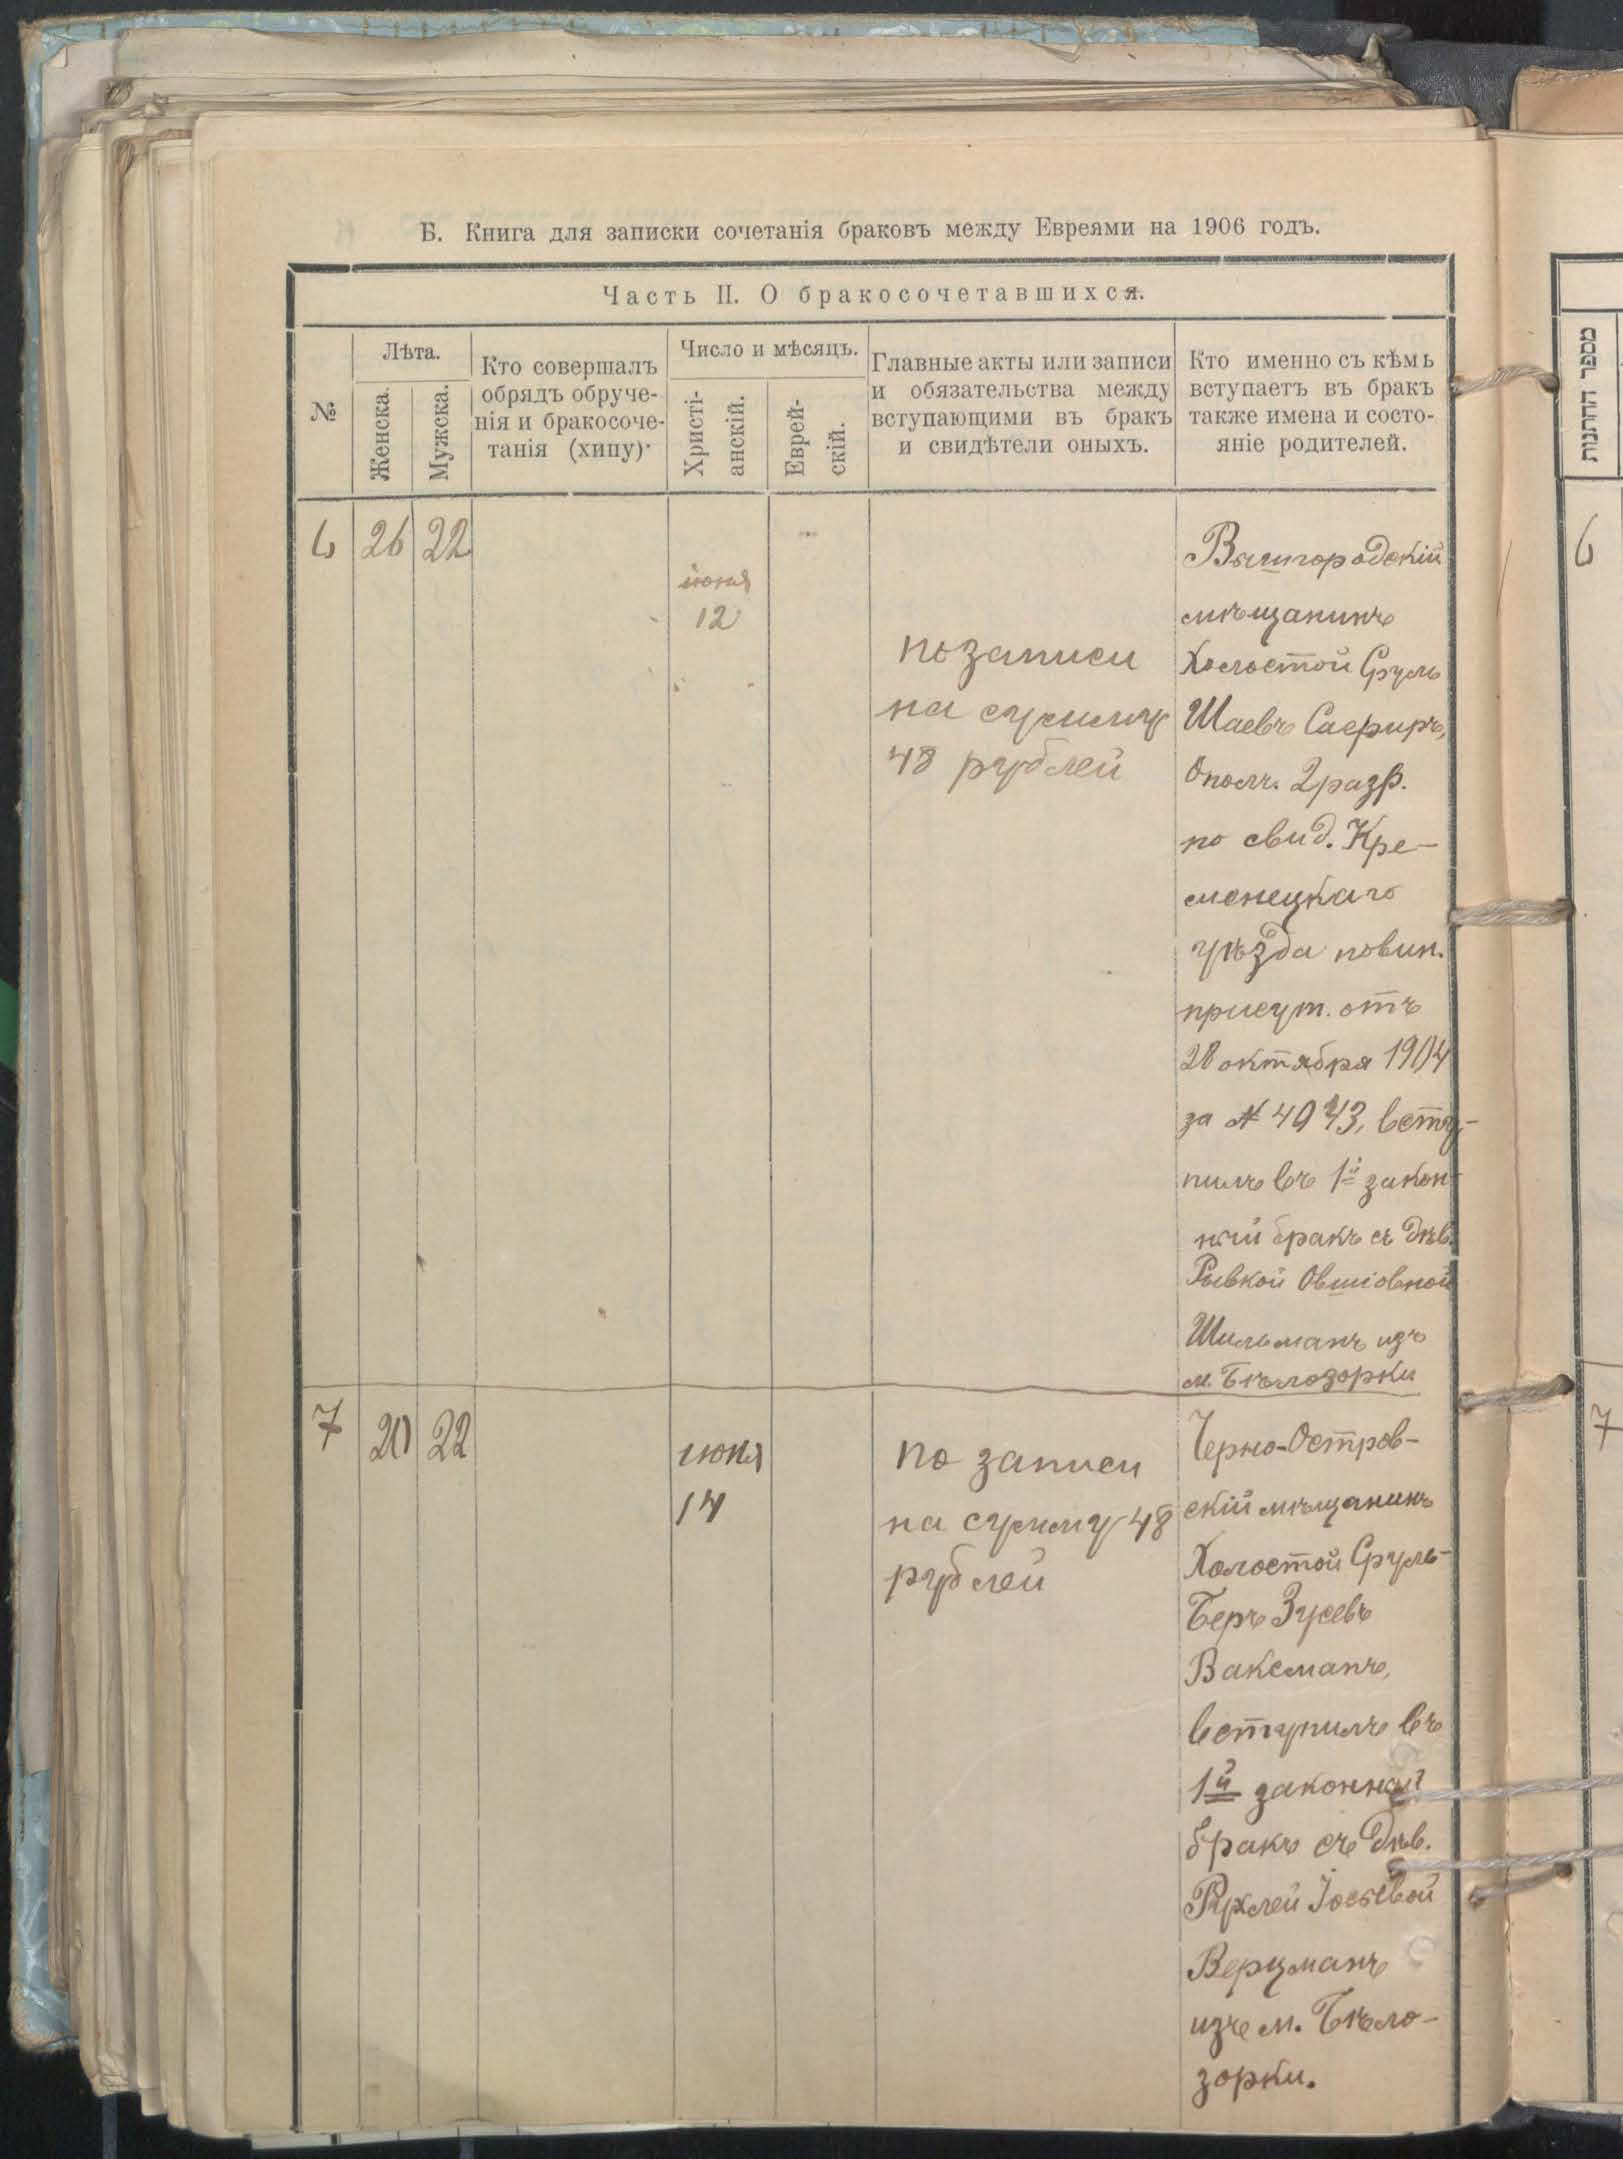 Б. Книга для записки сочетанія браковъ между Евреями на 1906 годъ.
Часть II. О бракосочетавшихся.
№
Лѣта.
Женска.
Мужска.
Кто совершалъ
обрядъ обруче-
нія и бракосоче-
танія (хипу)
Число и мѣсяцъ.
Христі-
анскій.
Еврей-
скій.
Главные акты или записи
и обязательства между
вступающими въ бракъ
и свидѣтели оныхъ.
Кто именно съ кѣмъ
вступаетъ въ бракъ
также имена и состо-
яніе родителей.
6 26 22
июня
12
по записи
на сумму
48 рублей
Вышгородскій
мѣщанинъ
Холостой Сруль
Шаевъ Сафиръ,
Ополч. 2 разр.
по свид. Кре-
менецкаго
уѣзда повин.
присут. отъ
28 октября 1904
за № 4043, всту-
пилъ въ 1й закон-
ный бракъ съ дѣв.
Рывкой Овшіовной
Шильманъ изъ
м. Бѣлозорки
7 20 22
июня
14
по записи
на сумму 48
рублей
Черно-Остров-
скій мѣщанинъ
Холостой Сруль-
Беръ Зусевъ
Ваксманъ,
вступилъ въ
1й законный
бракъ съ дѣв.
Рухлей Іосевой
Верцманъ
изъ м. Бѣло-
зорки.
מספר החתנות
6
7